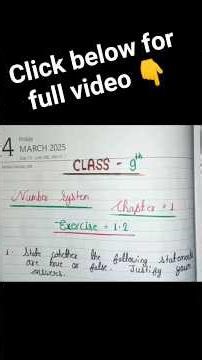 Click below for
full video 👇
4
Friday
MARCH 2025
CLASS - 9th
Number System
Chapter = 1
Exercise = 1.2
1. State whether the following statements
are true or false. Justify your
answers.